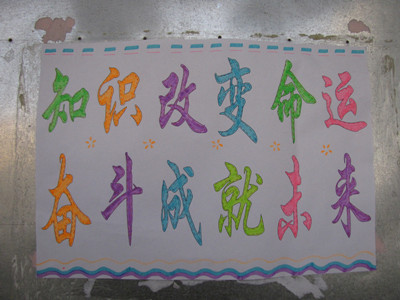 知识改变命运
奋斗成就未来